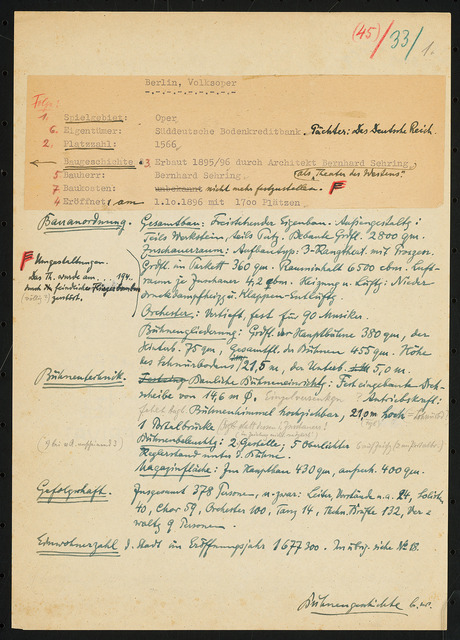 (45)/33/1.
Berlin, Volksoper
Folge:
1. Spielgebiet: Oper
6. Eigentümer: Süddeutsche Bodenkreditbank. Pächter: Das Deutsche Reich.
2. Platzzahl: 1566
← Baugeschichte 3 Erbaut 1895/96 durch Architekt Bernhard Sehring
5 Bauherr: Bernhard Sehring „als Theater des Westens".
7 Baukosten: unbekannt nicht mehr festzustellen. F
4 Eröffnet am 1.10.1896 mit 1700 Plätzen
Bauanordnung. Gesamtbau: Freistehender Eigenbau. Außengestaltg:
Teils Werkstein, teils Putz. Bebaute Grdfl. 2800 qm.
Zuschauerraum: Aufbautyp: 3-Rangtheat. mit Proszen.
F Umgestaltungen.
Das Th. wurde am ... 194.
durch feindliche Fliegerbomben
(völlig?) zerstört.
Grdfl. im Parkett 360 qm. Rauminhalt 6500 cbm. Luft-
raum je Zuschauer 4,2 cbm. Heizung u. Lüftg: Nieder-
druckdampfheizg u. Klappen-Entlüftg.
Orchester: Vertieft, fest für 90 Musiker.
Bühnengliederung: Grdfl. der Hauptbühne 380 qm, der
Hinterb. 75 qm, Gesamtfl. der Bühnen 455 qm. Höhe
des Schnürbodens 21,5 m, der Unterb. 5,0 m.
Bühnentechnik. Bauliche Bühneneinrichtg: Fest eingebaute Dreh-
scheibe von 14,6 m Ø. ? Antriebskraft:
Bühnenhimmel hochziehbar, 21,0 m hoch
1 Portalbrücke
Bühnenbeleuchtg: 2 Gestelle; 5 Oberlichter
Reglerstand unter d. Bühne.
Magazinfläche: Im Haupthaus 430 qm, außerh. 400 qm.
Gefolgschaft. Insgesamt 378 Personen, u. zwar: Leiter, Vorstände u.a. 24, Solisten
40, Chor 59, Orchester 100, Tanz 14, Techn. Kräfte 132, Ver-
waltg 9 Personen.
Einwohnerzahl d. Stadt im Eröffnungsjahr 1677300. Im übrig. siehe No 18.
Bühnengeschichte